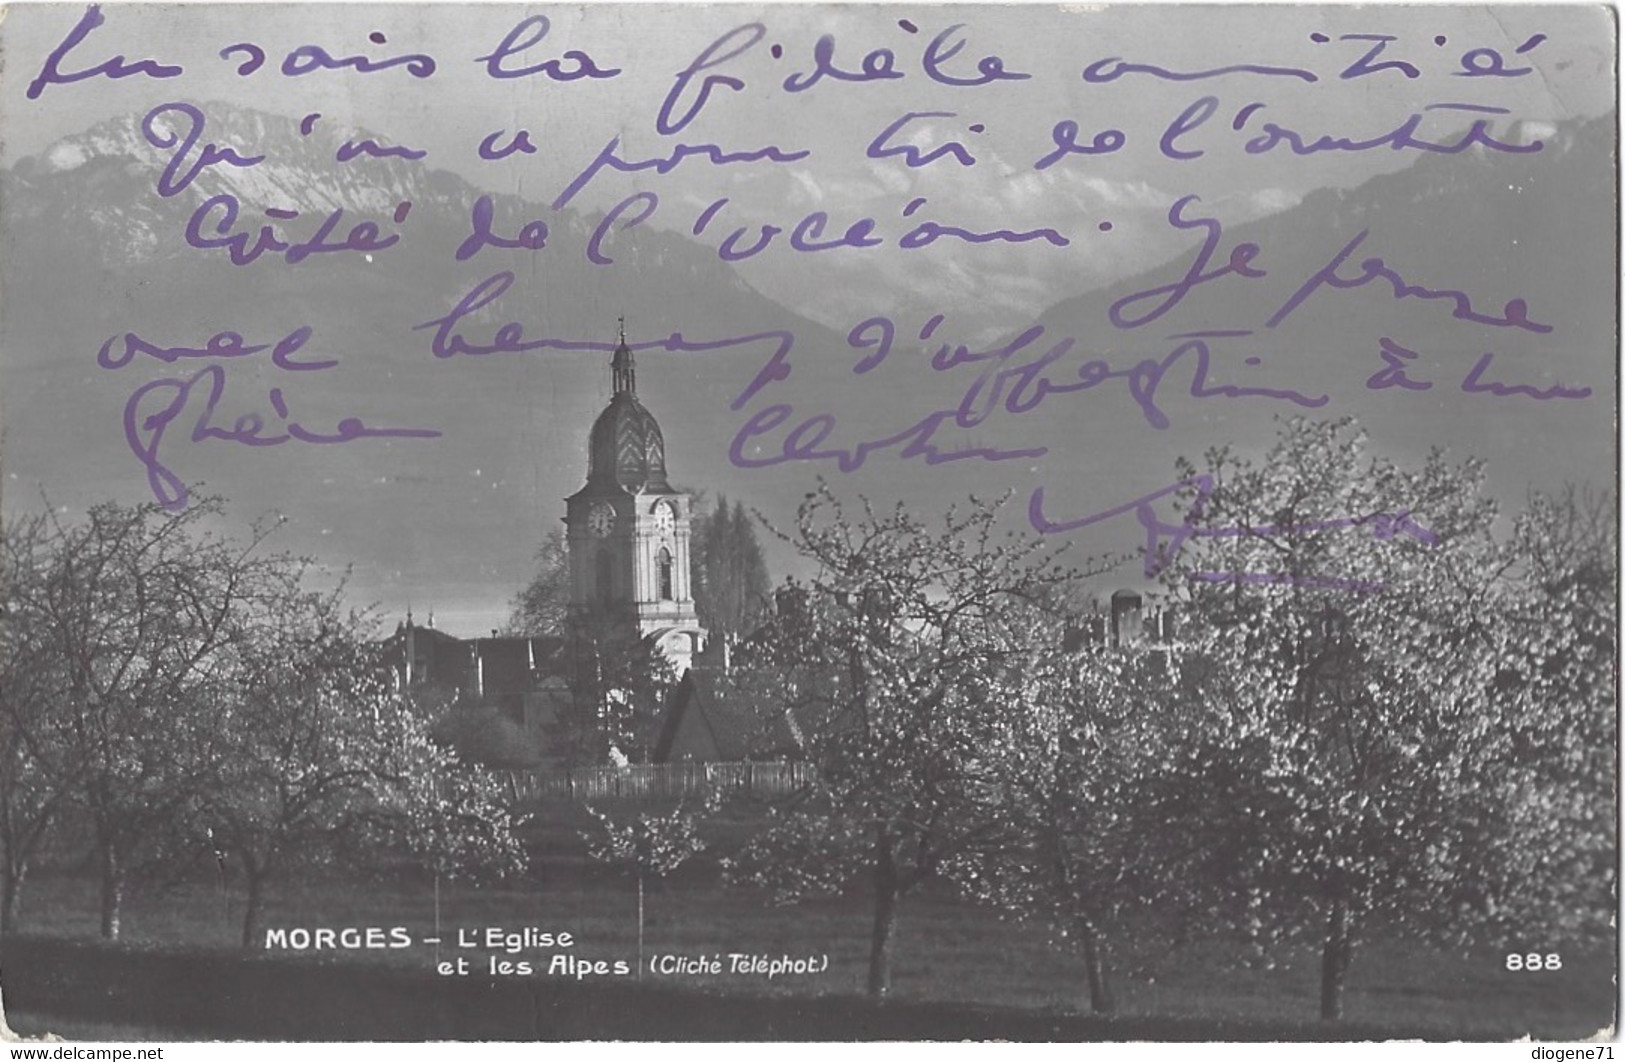 Tu sais la fidèle amitié
Qu'on a pour toi de l'autre
Côté de l'océan. Je pense
avec beaucoup d'affection à ton
MORGES - L'Eglise
et les Alpes (Cliché Téléphot.)
888
diogene71